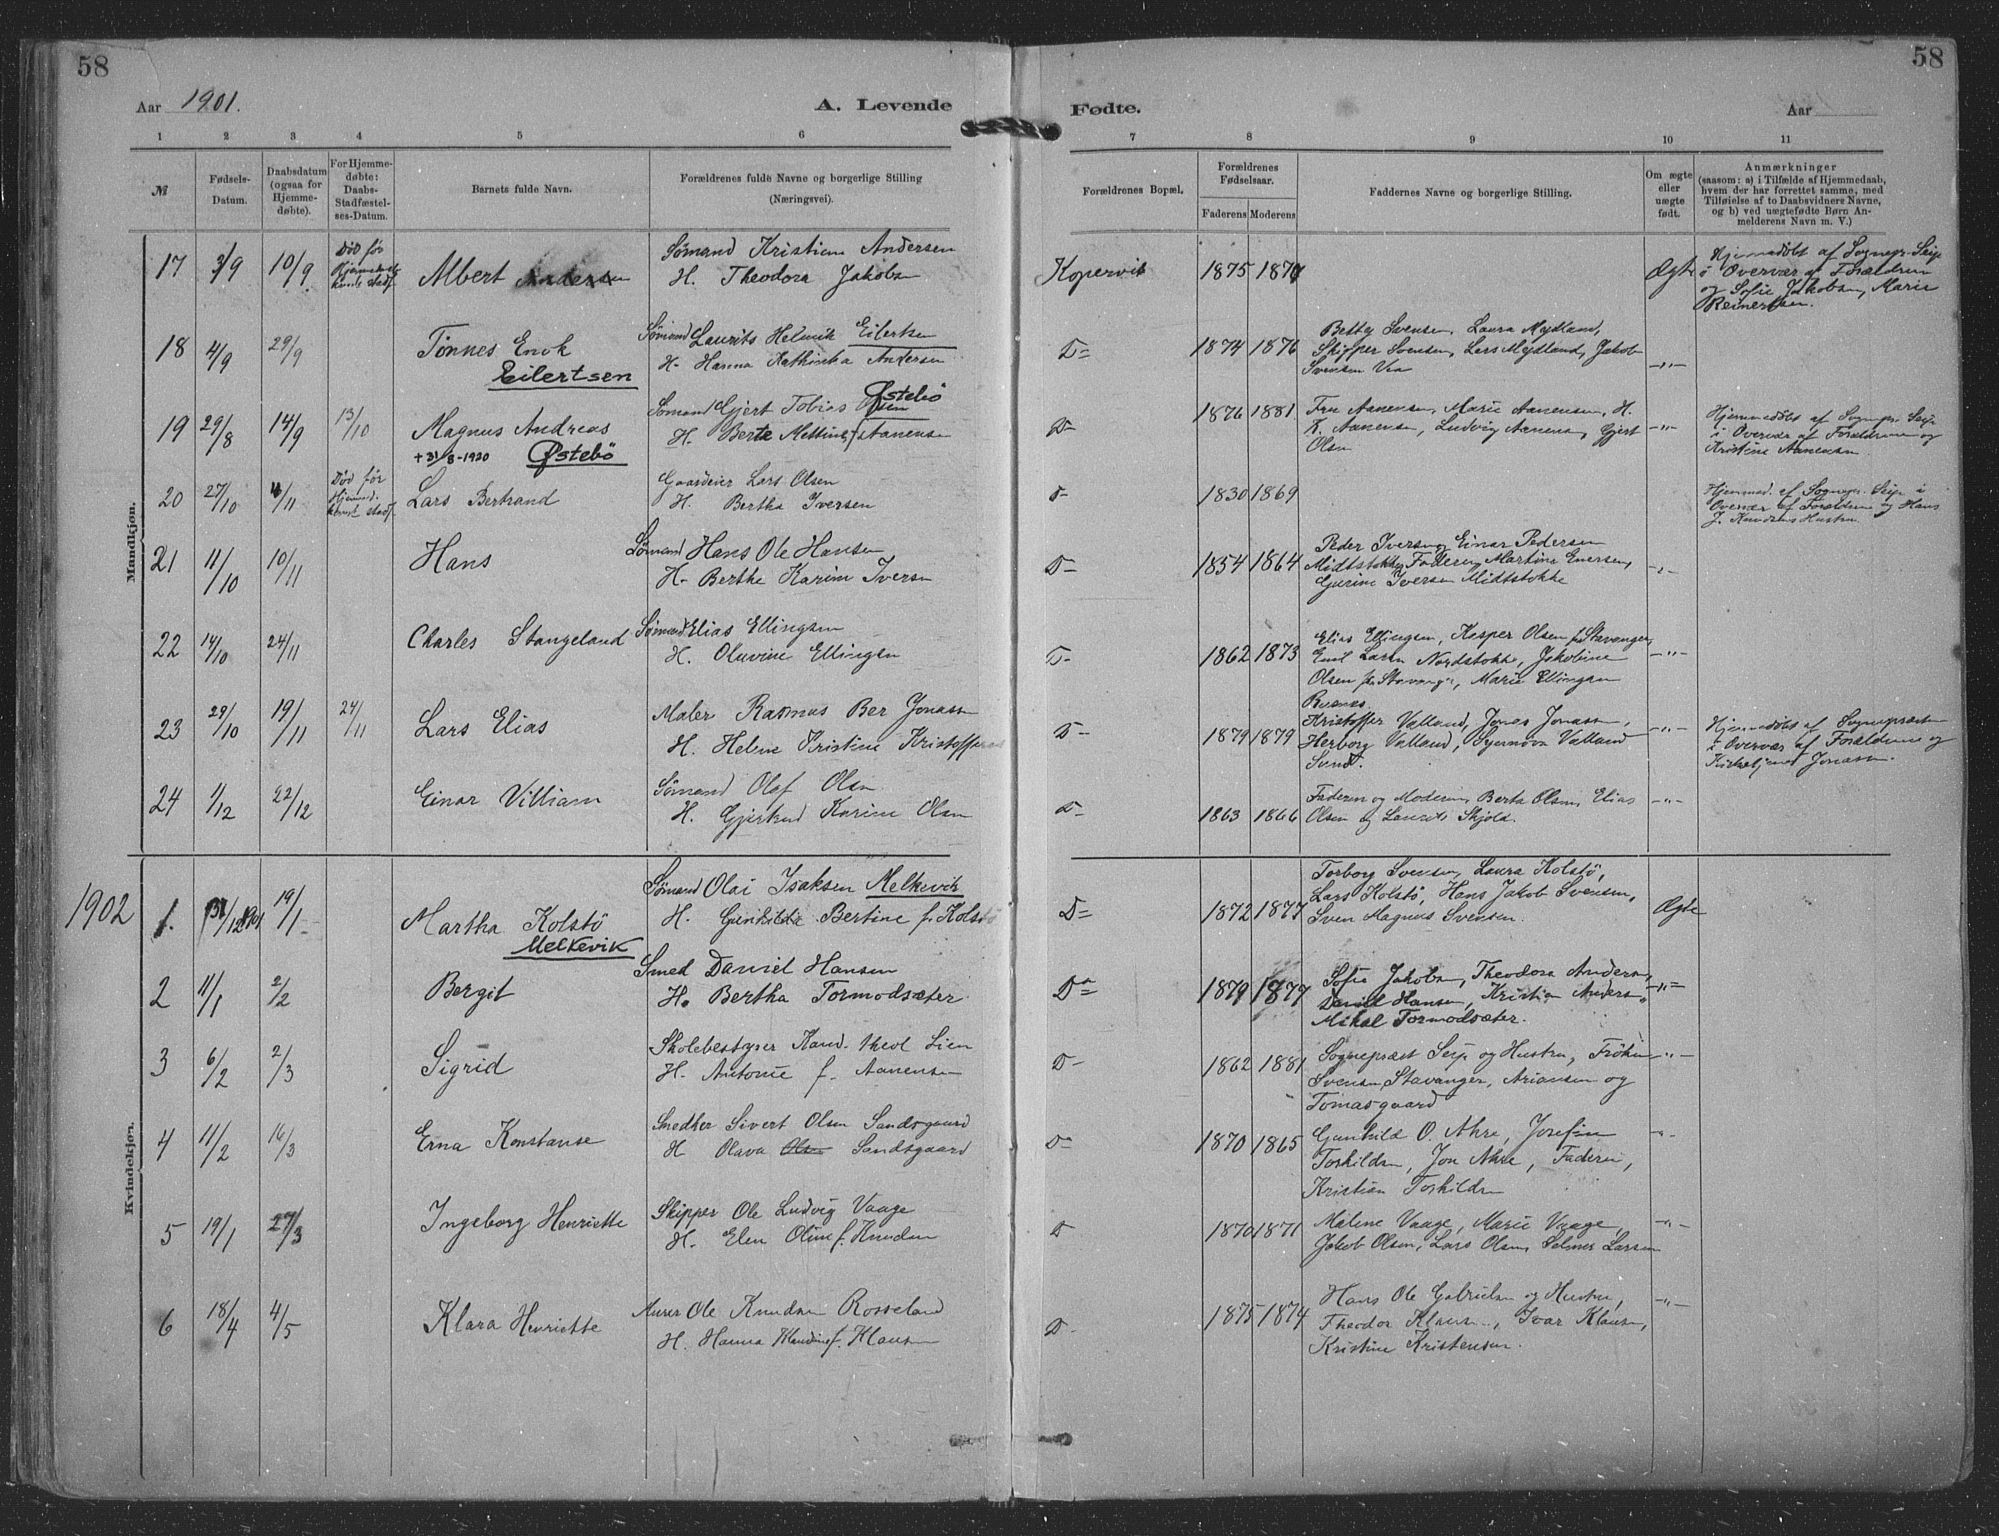 58
58
Aar 1901.
A. Levende
Fødte.
Aar
1 2 3 4 5 6 7 8 9 10 11
№
Fødsels-Datum.
Daabsdatum (ogsaa for Hjemmedøbte).
For Hjemmedøbte: Daabs-Stadfæstelses-Datum.
Barnets fulde Navn.
Forældrenes fulde Navne og borgerlige Stilling (Næringsvei).
Forældrenes Bopæl.
Forældrenes Fødselsaar.
Faderens Moderens
Faddernes Navne og borgerlige Stilling.
Om ægte eller uægte født.
Anmærkninger
(saasom: a) i Tilfælde af Hjemmedaab, hvem der har forrettet samme, med Tilføielse af to Daabsvidners Navne, og b) ved uægtefødte Børn Anmelderens Navn m. V.)
Mandkjøn.
17 3/9 10/9 Død før
Albert Andersen
Sømand Kristian Andersen
H. Theodora Jakobsen
Kopervik 1875 Ægte
Hjemmedøbt af Sognepr. Seip
i Overvær af Forældrene
og Sofie Jakobsen, Marie
Reinertsen.
18 4/9 29/9
Tønnes Enok
Eilertsen
Sømand Laurits Helmik Eilertsen
H. Hanna Kathinka Andersen
D= 1874 1876
Betty Svensen, Laura Mydland,
Skipper Svensen, Lars Mydland, Jakob
Svensen Vea
—"—
19 29/8 14/9 13/10
Magnus Andreas
+ 31/8-1920 Østebö
Sømand Gjert Tobias Olsen Østebö
H. Berte Mettine f. Aanensen
D- 1876 1881
Fru Aanensen, Marie Aanensen, H.
K. Aanensen, Ludvig Aanensen, Gjert
Olsen
—"—
Hjemmedøbt af Sognepr. Seip
i Overvær af Forældrene og
Kristine Aanensen.
20 27/10 4/11 Død før
Lars Bertrand
Gaardeier Lars Olsen
H. Bertha Iversen
D- 1830 1869
Hjemmed. af Sognepr. Seip i
Overvær af Forældrene og Hans
J. Knudsens Hustru.
21 11/10 10/11
Hans
Sømand Hans Ole Hansen
H. Berthe Karine Iversen
D- 1854 1864
Peder Iversen, Einar Pedersen
Midtstokke, Faderen, Martine Enersen,
Gurine Iversen Midtstokke
22 14/10 24/11
Charles Stangeland
Sømand Elias Ellingsen
H. Oluvine Ellingsen
D- 1862 1873
Elias Ellingsen, Kasper Olsen fra Stavanger,
Emil Larsen Nordstokke, Jakobine
Olsen fra Stavanger, Marie Ellingsen
—"—
23 29/10 19/11 24/11
Lars Elias
Maler Rasmus Ber Jonassen
H. Helene Kristine Kristoffersen
D- 1879 1879
Kristoffer Valland, Jonas Jonassen,
Herborg Valland, Synnøva Valland
Sund.
—"—
Hjemmedøbt af Sognepræsten
i Overvær af Forældrene og
Kirketjener Jonassen.
24 1/12 22/12
Einar Villiam
Sømand Olaf Olsen
H. Gjertrud Karine Olsen
D- 1863 1866
Faderen og Moderen, Berta Olsen, Elias
Olsen og Laurits Skjold.
—"—
1902
Kvindekjøn.
1. 31/12 1901 19/1
Martha Kolstö
Melkevik
Sømand Olai Isaksen Melkevik
H. Gunhilda Bertine f. Kolstö
D= 1872 1877
Torborg Svensen, Laura Kolstö,
Lars Kolstö, Hans Jakob Svensen,
Sven Magnus Svensen.
Ægte
2 11/1 2/2
Bergit
Smed Daniel Hansen
H. Bertha Tormodsæter
Do 1879 1877
Sofie Jakobsen, Theodora Andersen,
Daniel Hansen, Kristian Andersen,
Mikal Tormodsæter.
—"—
3 6/2 2/3
Sigrid
Skolebestyrer Kand. theol Lien
H. Antonie f. Aanensen
D- 1862 1881
Sognepræst Seip og Hustru, Frøken
Svensen Stavanger, Ariansen og
Tomasgaard
—"—
4 11/2 16/3
Erna Konstanse
Snedker Sivert Olsen Sandsgaard
H Olava Olsen Sandsgaard
Do 1870 1865
Gunhild O. Akre, Josefine
Torkildsen, Jon Akre, Faderen,
Kristian Torkildsen
—"—
5 19/1 27/3
Ingeborg Henriette
Skipper Ole Ludvig Vaage
H. Elen Oline f. Knudsen
D 1870 1871
Malene Vaage, Marie Vaage,
Jakob Olsen, Lars Olsen, Selmer Larsen
—"—
6 18/4 4/5
Klara Henriette
Murer Ole Knudsen Rosseland
H. Hanna Klaudine f. Klausen
D- 1875 1874
Hans Ole Gabrielsen og Hustru,
Theodor Klausen, Ivar Klausen,
Kristine Kristensen.
—"—